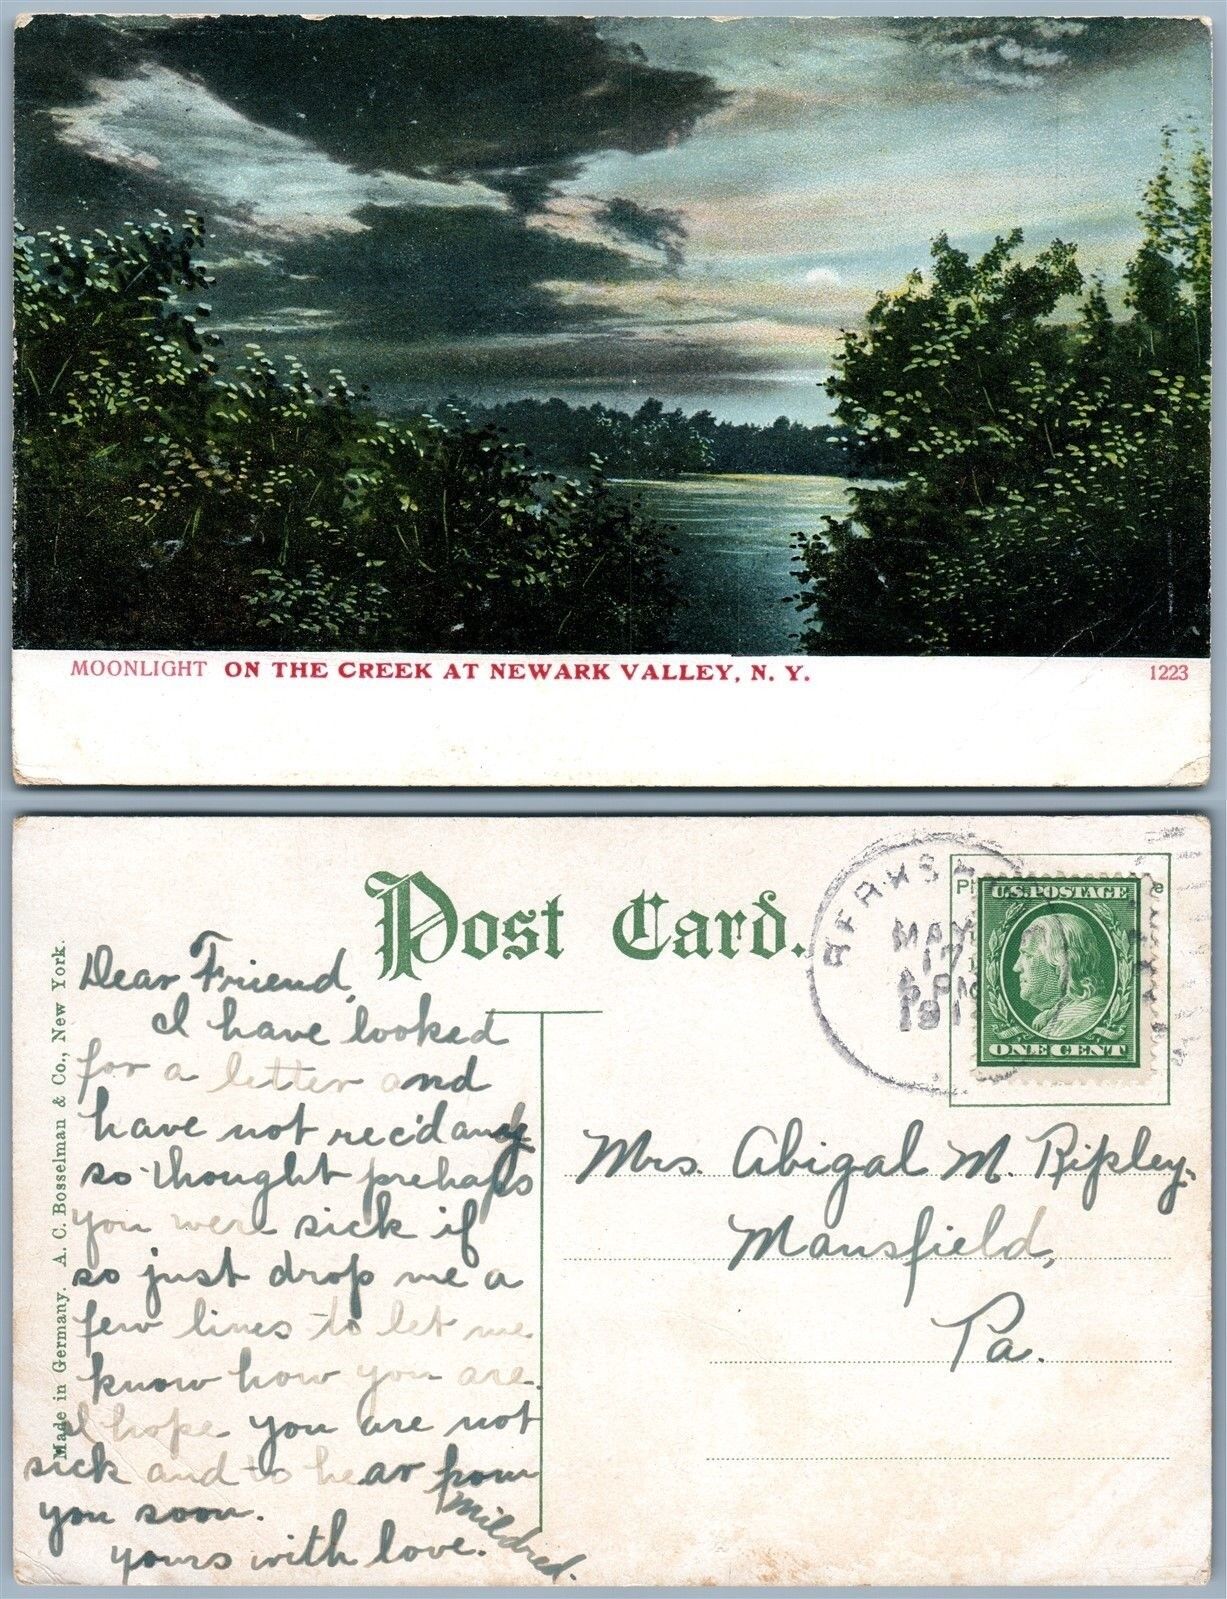 MOONLIGHT ON THE CREEK AT NEWARK VALLEY, N. Y.
1223
Post Card.
U.S. POSTAGE
ONE CENT
MAY
17
PM
191
Made in Germany. A. C. Bosselman & Co., New York.
Dear Friend,
I have looked
for a letter and
have not rec'd any
so thought prehaps
you were sick if
so just drop me a
few lines to let me
know how you are.
I hope you are not
sick and to hear from
you soon.
yours with love.
Mildred.
Mrs. Abigal M. Ripley,
Mansfield,
Pa.